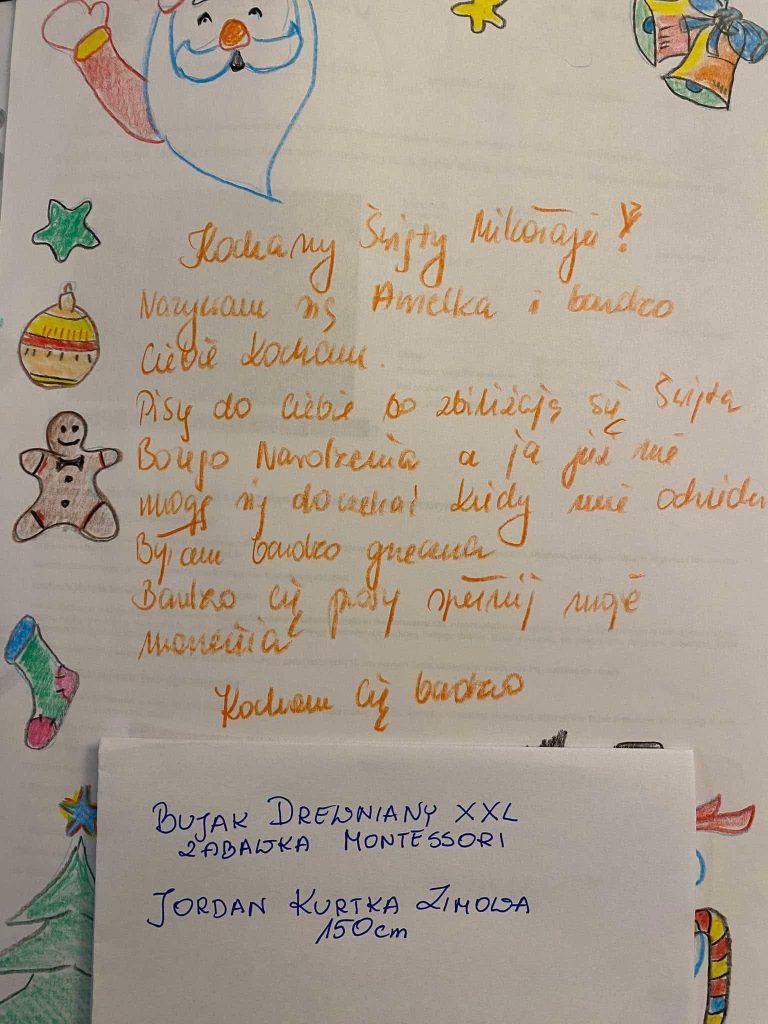 Kochany Święty Mikołaju!
Nazywam się Amelka i bardzo
Ciebie kocham.
Piszę do Ciebie bo zbiliżają się Święta
Bożego Narodzenia a ja już nie
mogę się doczekać kiedy mnie odwiedz
Byłam bardzo grzeczna
Bardzo cię proszę spełnij moje
marzenia
Kocham Cię bardzo
BUJAK DREWNIANY XXL
ZABAWKA MONTESSORI
JORDAN KURTKA ZIMOWA
150cm